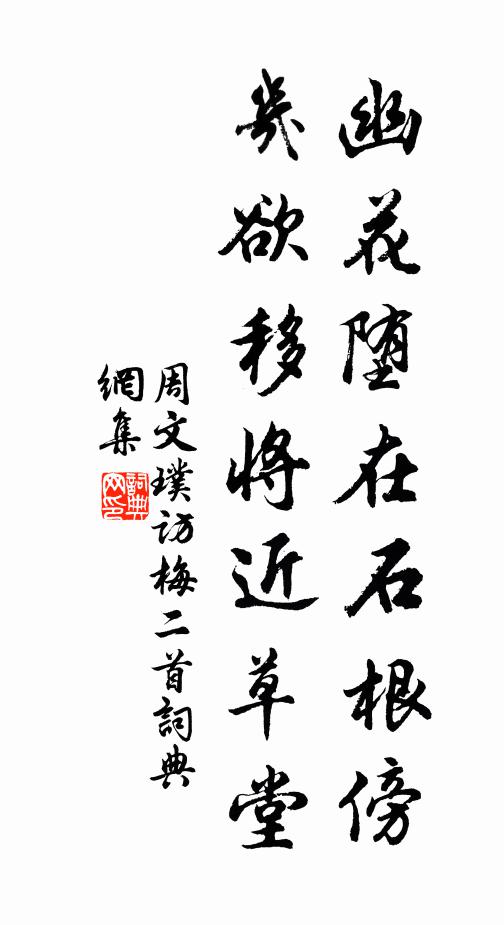 幽花堕在石根傍
幾欲移將近草堂
周文璞訪梅二首詞典
網集
詞典网印